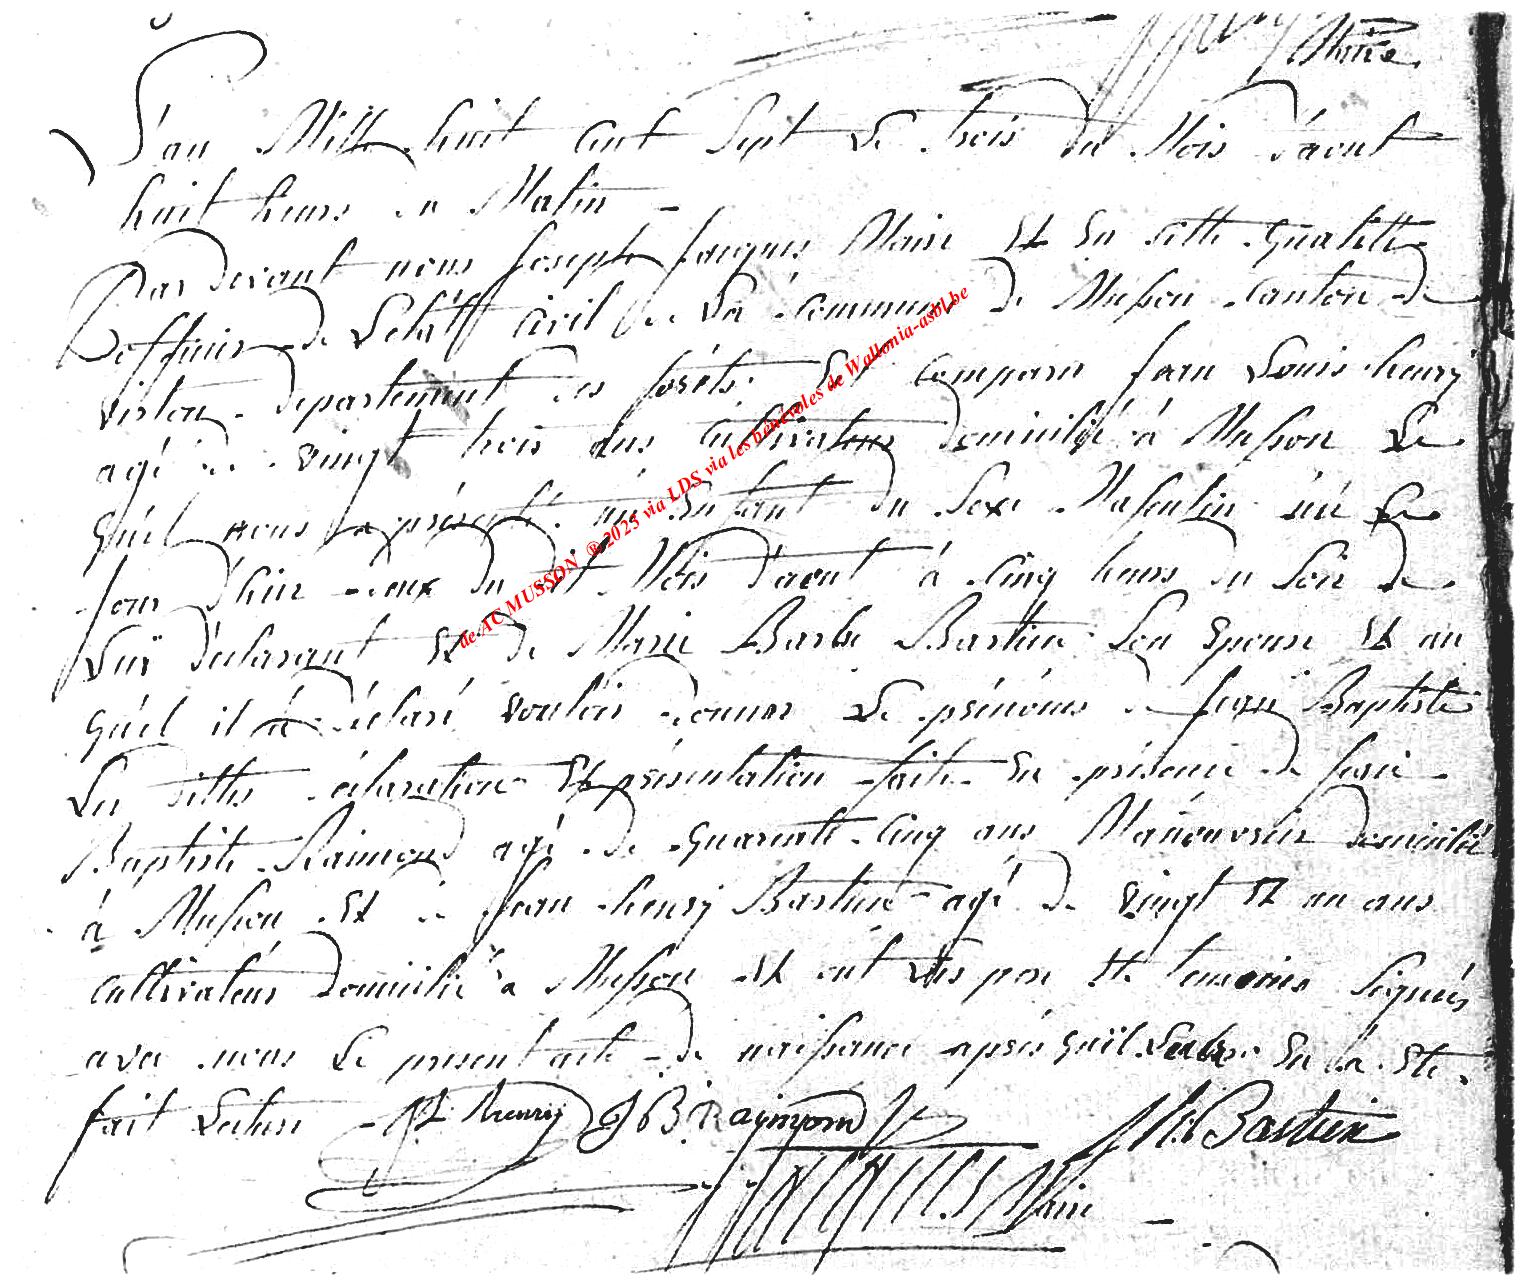 Maire
L'an Mille huit Cent Sept Le trois du Mois d'aout
huit heures du Matin
Pardevant nous Joseph Jacques Maire Et En Cette Qualitté
D'officier de L'état Civil de La Commune de Musson Canton de
Virton departement des forêts. Est Comparu Jean Louis henry
agé de vingt trois ans Cultivateur domicilié à Musson Le
Quel nous a présenté un Enfant du Sexe Masculin né Le
Jour d'hier deux du dit Mois d'aout à Cinq heures du Soir de
Lui déclarant Et de Marie Barbe Bastin Son Epouse Et au
Quel il à déclaré vouloir donner Le prénoms de Jean Baptiste
Les dittes déclaration Et présentation faite En présence de Jean
Baptiste Raimond agé de Quarente Cinq ans Manouvrier domicilié
à Musson Et de Jean henry Bastin agé de vingt Et un ans
Cultivateur domicilié à Musson Et ont Les pere Et temoins Signés
avec nous Le present acte de naissance après Quil En à Eté
fait Lecture JL henry JB Raymond JH Bastin
Maire
de AC MUSSON ®2023 via LDS via les bénévoles de Wallonia-asbl.be